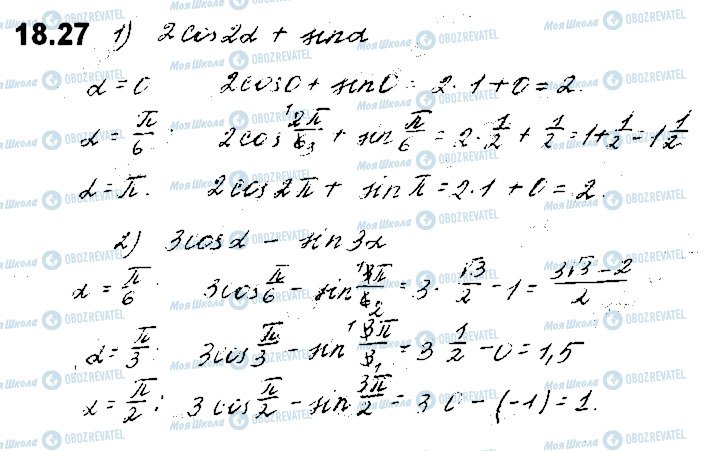 18.27 1) 2cos2α + sinα
α = 0 2cos0 + sin0 = 2·1+0 = 2.
α = π/6 : 2cos 2π/6 + sin π/6 = 2·1/2 + 1/2 = 1+1/2 = 1 1/2
α = π. 2cos2π + sinπ = 2·1+0 = 2.
2) 3cosα − sin3α
α = π/6 3cos π/6 − sin 3π/6 = 3·√3/2 − 1 = (3√3−2)/2
α = π/3 : 3cos π/3 − sin 3π/3 = 3 1/2 − 0 = 1,5
α = π/2 : 3cos π/2 − sin 3π/2 = 3 0 − (−1) = 1.